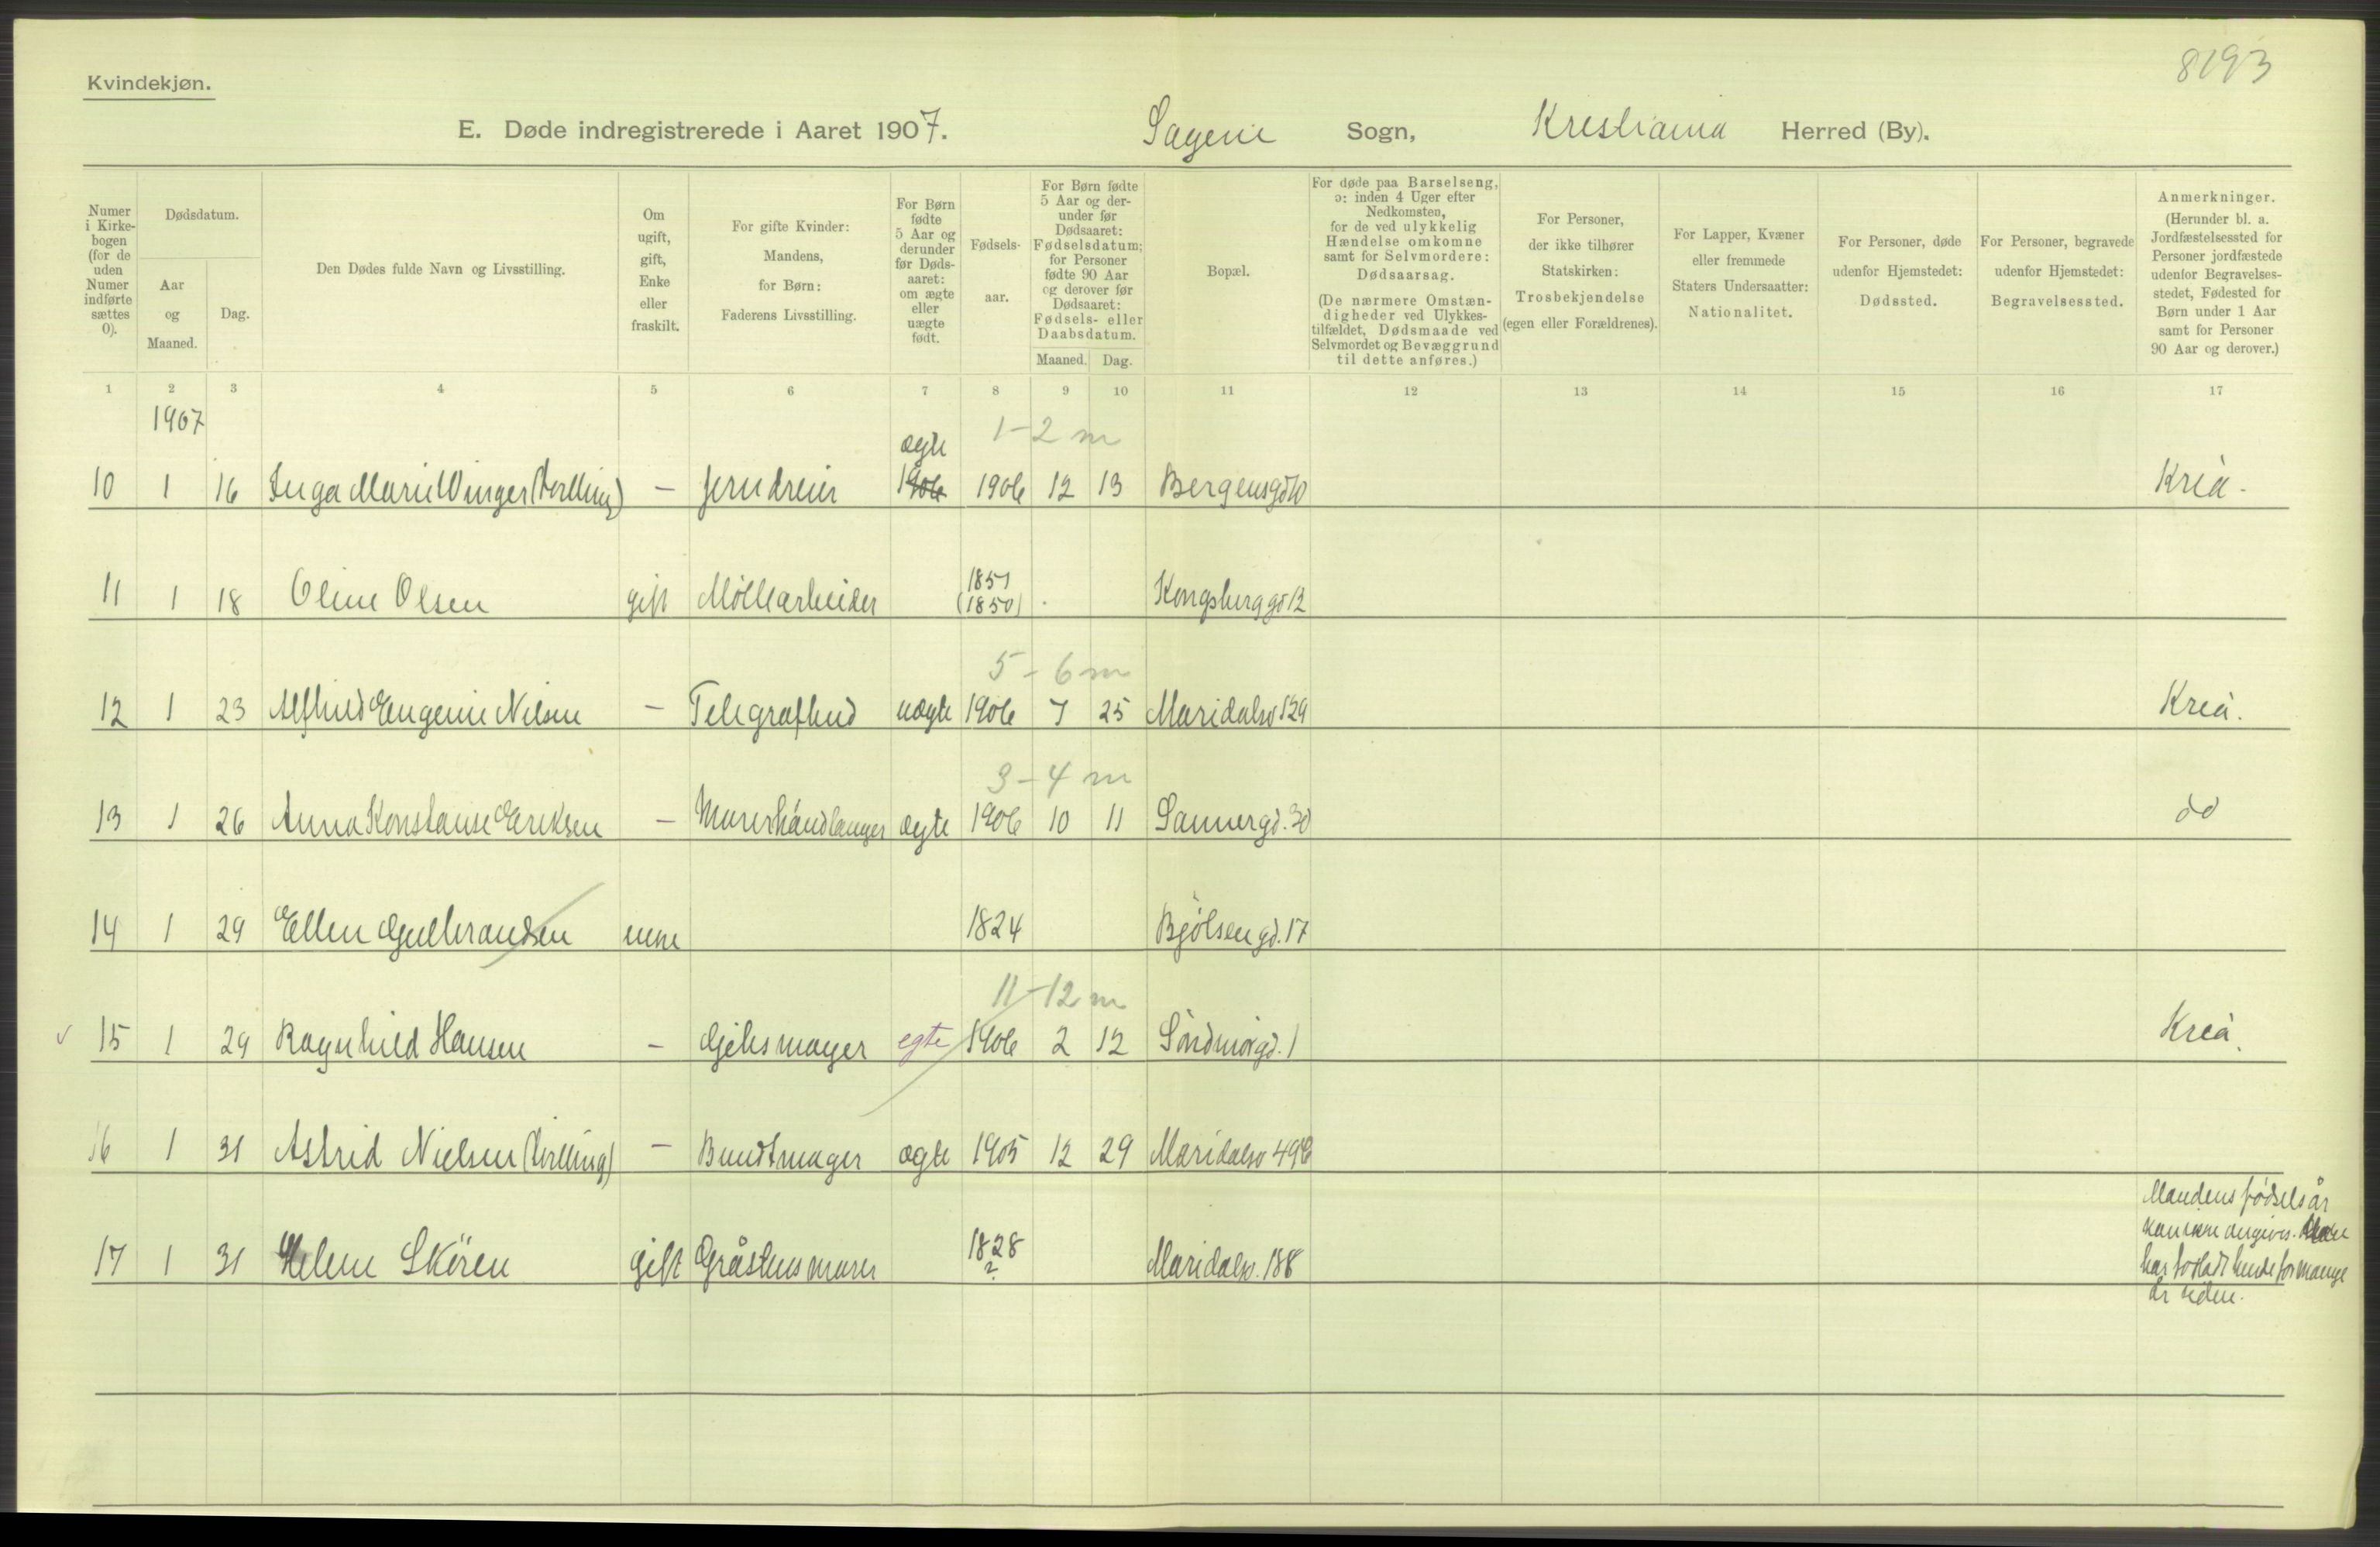 8193
Kvindekjøn.
E. Døde indregistrerede i Aaret 1907. Sagene Sogn, Kristiania Herred (By).
Numer i Kirkebogen (for de uden Numer indførte sættes 0).
Dødsdatum.
Aar og Maaned.
Dag.
Den Dødes fulde Navn og Livsstilling.
Om ugift, gift, Enke eller fraskilt.
For gifte Kvinder: Mandens, for Børn: Faderens Livsstilling.
For Børn fødte 5 Aar og derunder før Dødsaaret: om ægte eller uægte født.
Fødselsaar.
For Børn fødte 5 Aar og derunder før Dødsaaret: Fødselsdatum; for Personer fødte 90 Aar og derover før Dødsaaret: Fødsels- eller Daabsdatum.
Maaned. Dag.
Bopæl.
For døde paa Barselseng, ɔ: inden 4 Uger efter Nedkomsten, for de ved ulykkelig Hændelse omkomne samt for Selvmordere: Dødsaarsag.
(De nærmere Omstændigheder ved Ulykkestilfældet, Dødsmaade ved Selvmordet og Bevæggrund til dette anføres.)
For Personer, der ikke tilhører Statskirken: Trosbekjendelse (egen eller Forældrenes).
For Lapper, Kvæner eller fremmede Staters Undersaatter: Nationalitet.
For Personer, døde udenfor Hjemstedet: Dødssted.
For Personer, begravede udenfor Hjemstedet: Begravelsessted.
Anmerkninger.
(Herunder bl. a. Jordfæstelsessted for Personer jordfæstede udenfor Begravelsesstedet, Fødested for Børn under 1 Aar samt for Personer 90 Aar og derover.)
1 2 3 4 5 6 7 8 9 10 11 12 13 14 15 16 17
1907
1-2 m
ægte
10 1 16 Inga Marie Winger (tvilling) - Jerndreier 1906 1906 12 13 Bergensgd 10 Kria.
1851
11 1 18 Oline Olsen gift Møllearbeider (1850) Kongsberggd 12
5-6 m
12 1 23 Alfhild Eugenie Nilsen - Telegrafbud uægte 1906 7 25 Maridalsv 129 Kria.
3-4 m
13 1 26 Anna Konstanse Eriksen - Murerhåndlanger ægte 1906 10 11 Sannergd. 30 do
14 1 29 Ellen Gulbrandsen enke 1824 Bjølsengd. 17
11-12 m
15 1 29 Ragnhild Hansen - Gjelsmager egte 1906 2 12 Søndmørgd. 1 Kria.
16 1 31 Astrid Nielsen (tvilling) - Buntmager ægte 1905 12 29 Maridalsv 49
17 1 31 Helene Skøren gift Gråstensmurer 1828 ? Maridalsv. 188
Mandens fødselsår
kan ikke angives.
har forladt hende for mange
år siden.